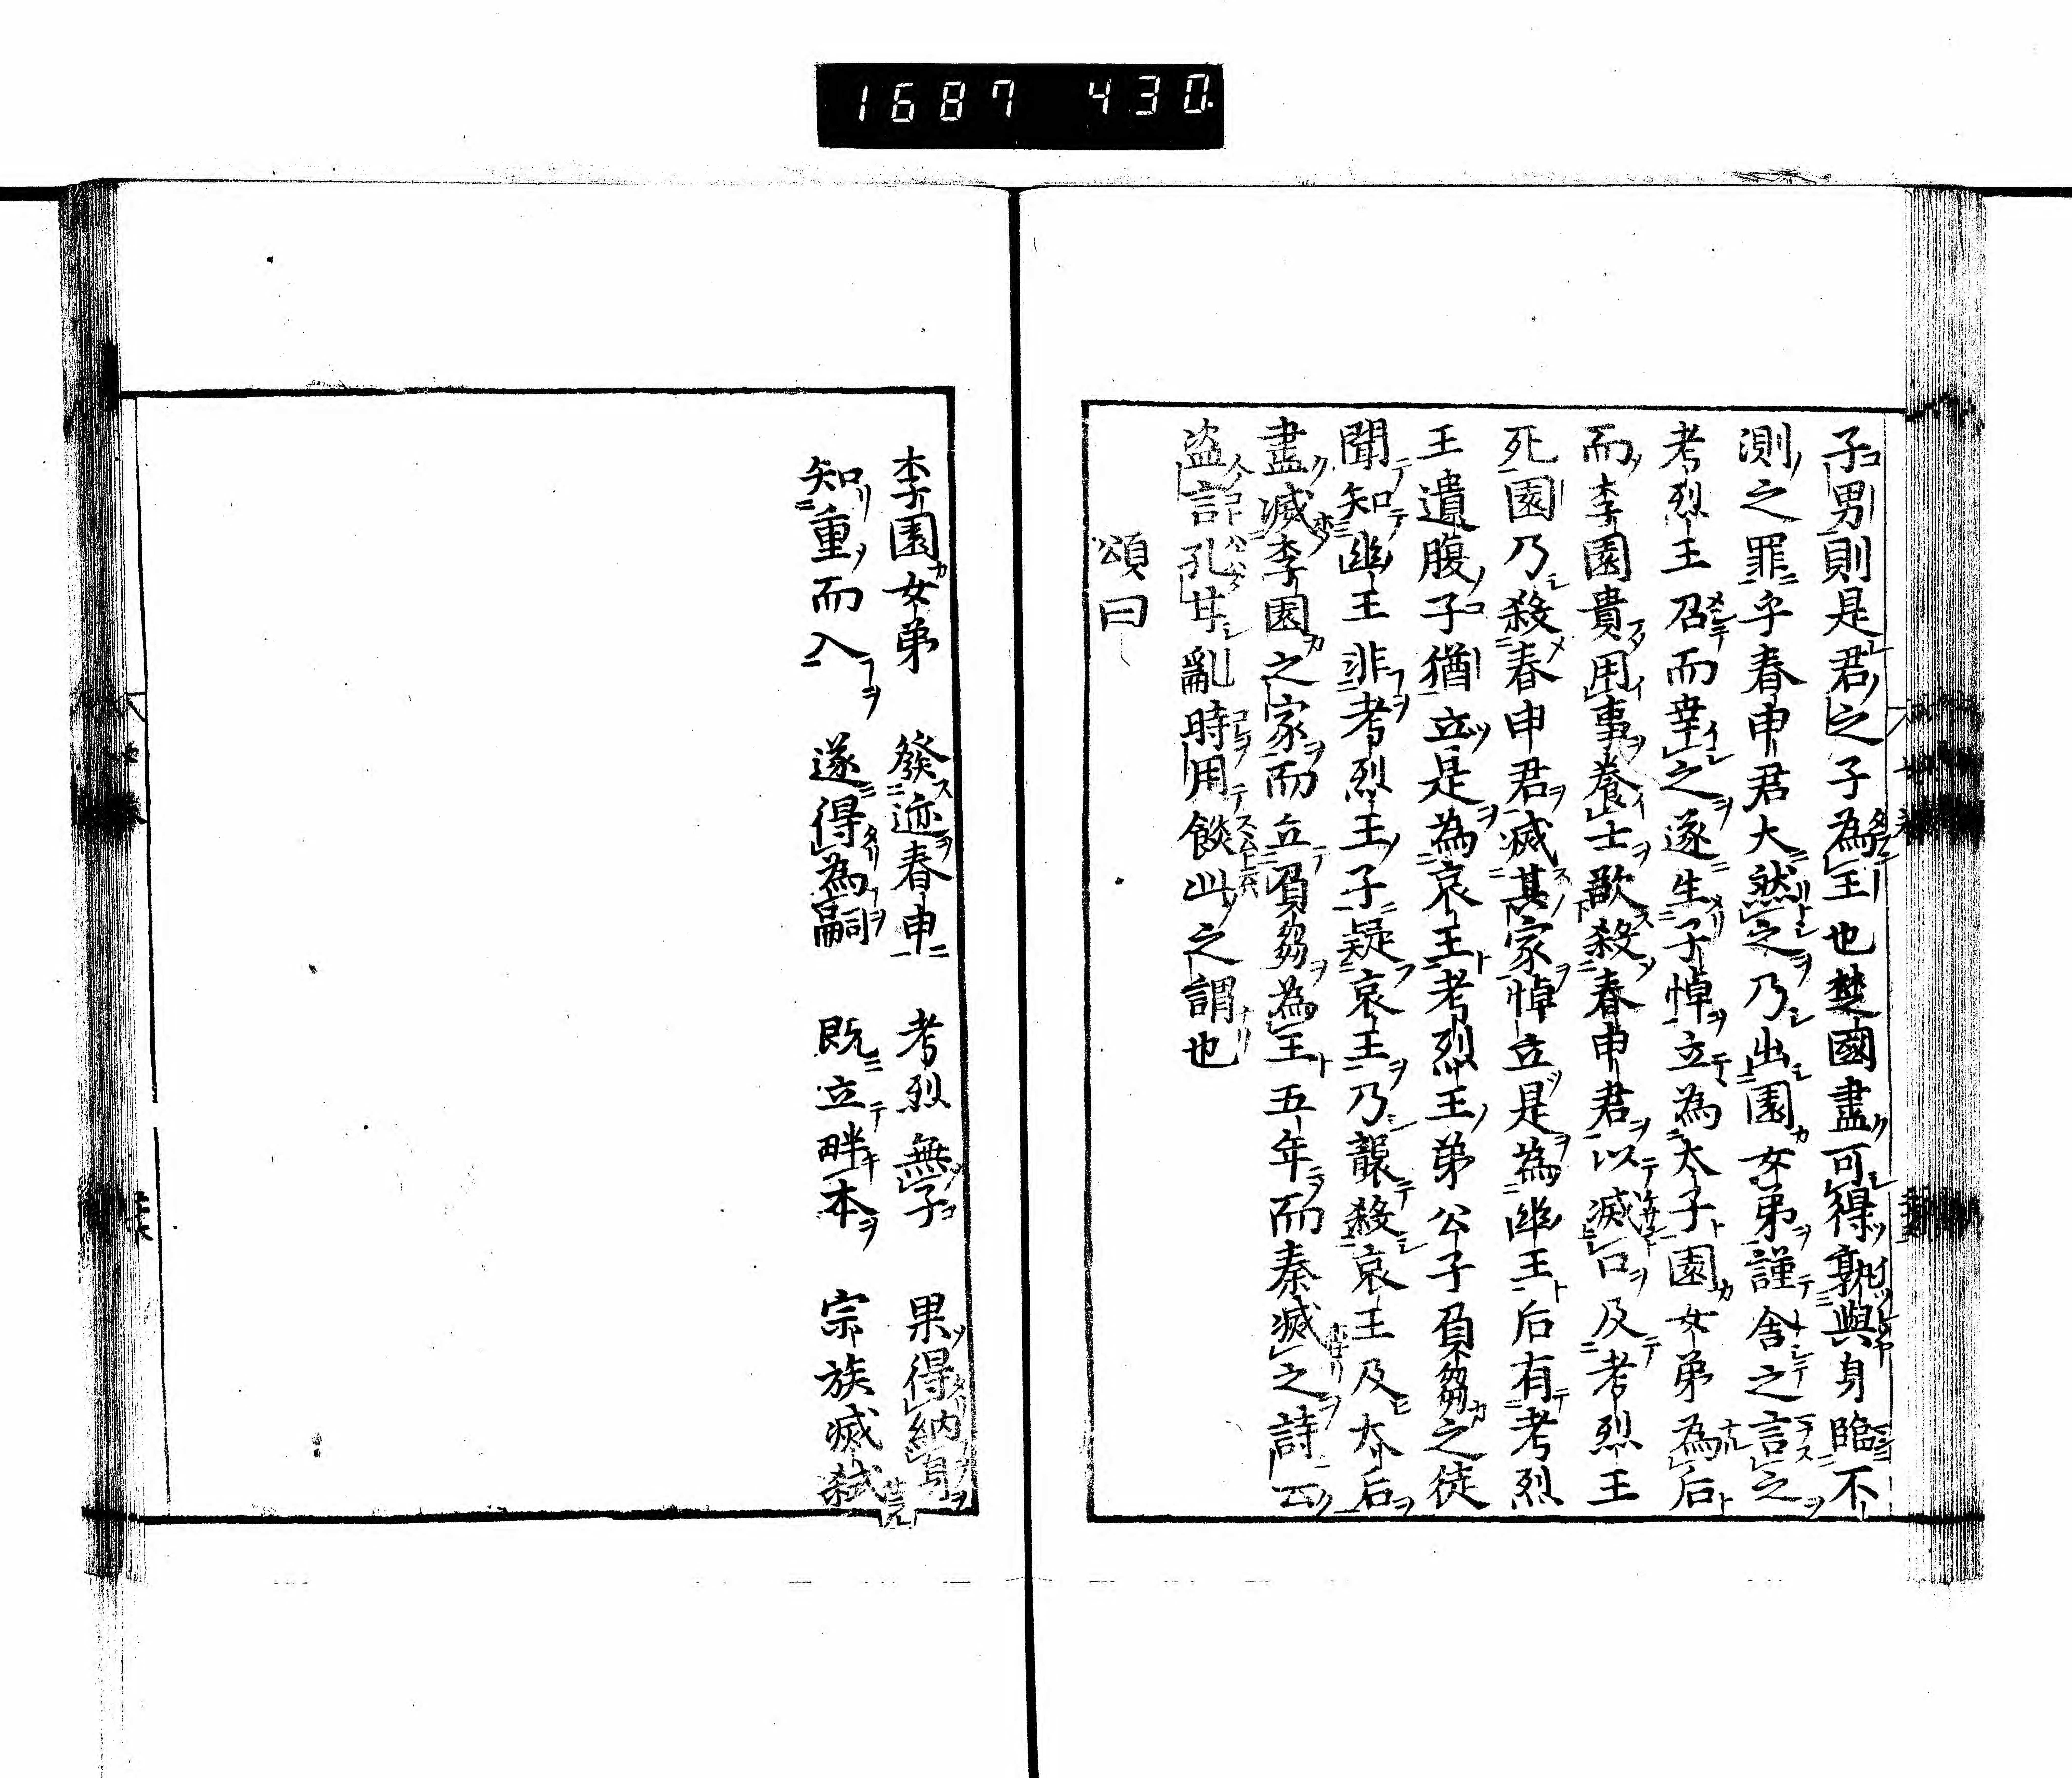 1687 430
子男則是君之子為王也楚國盡可得孰與身臨不
測之罪乎春申君大然之乃出園女弟謹舍之言之
考烈王召而幸之遂生子悼立為太子園女弟為后
而李園貴用事養士欲殺春申君以滅口及考烈王
死園乃殺春申君滅其家悼立是為幽王后有考烈
王遺腹子猶立是為哀王考烈王弟公子負芻之徒
聞知幽王非考烈王子疑哀王乃襲殺哀王及太后
盡滅李園之家而立負芻為王五年而秦滅之詩云
盜言孔甘亂時用餤此之謂也
頌曰
李園女弟　發迹春申　考烈無子　果得納身
知重而入　遂得為嗣　既立畔本　宗族滅弒